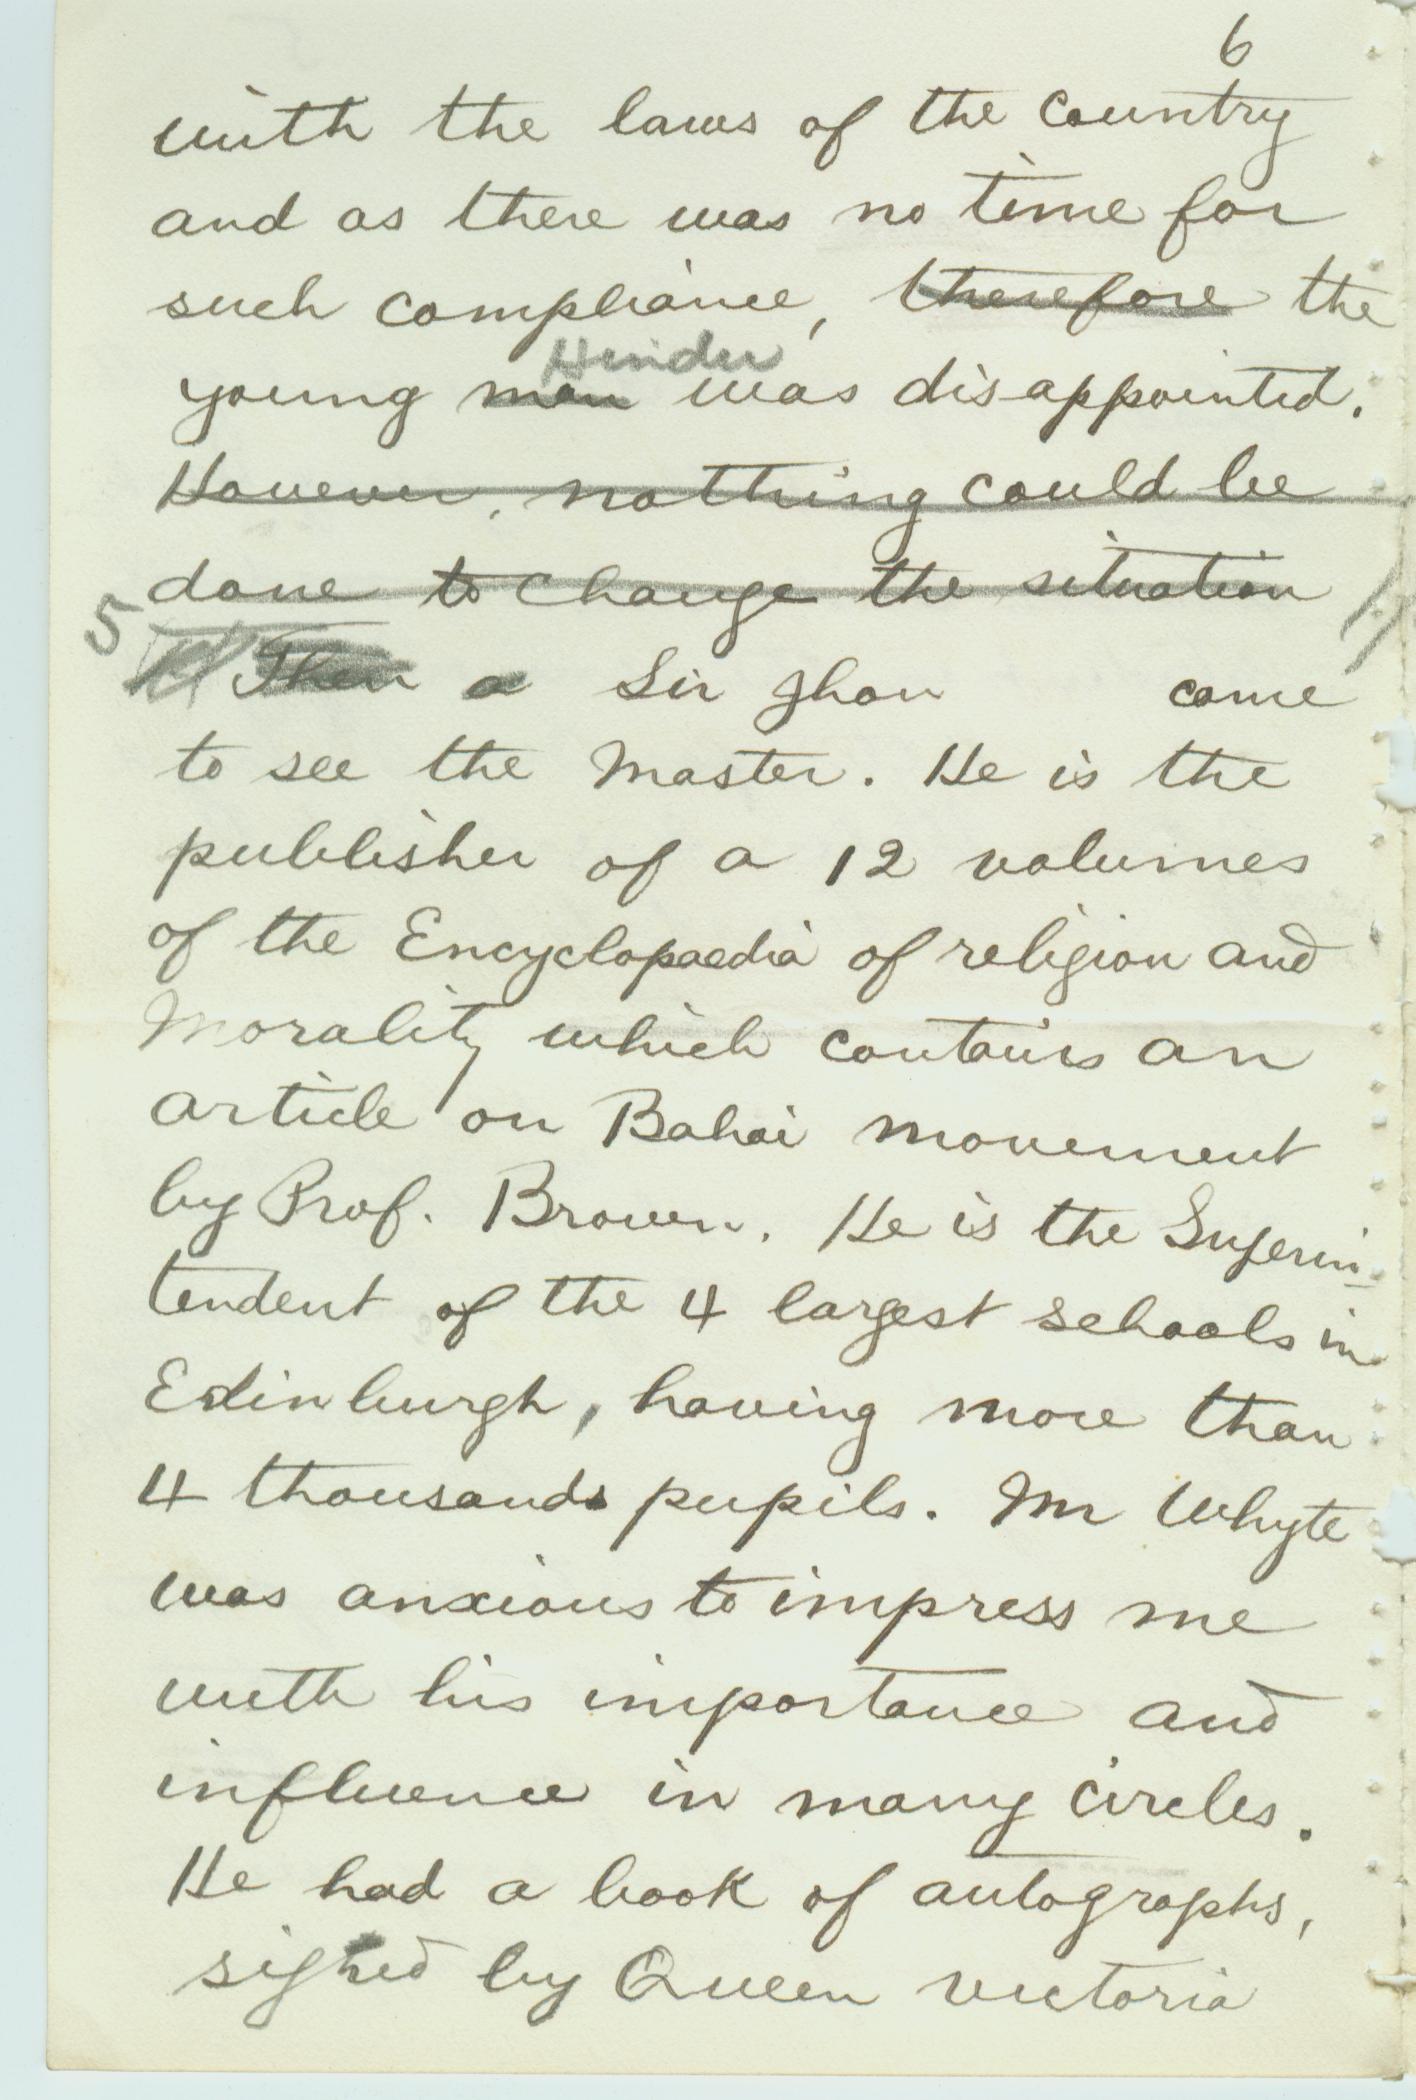 6
with the laws of the country
and as there was no time for
such compliance, therefore the
Hindu
young man was disappointed.
However, nothing could be
done to change the situation
5
Then a Sir Jhon came
to see the Master. He is the
publisher of a 12 volumes
of the Encyclopaedia of religion and
Morality which contains an
article on Bahai movement
by Prof. Brown. He is the Superin-
tendent of the 4 largest schools in
Edinburgh, having more than
4 thousands pupils. Mr Whyte
was anxious to impress me
with his importance and
influence in many circles.
He had a book of autographs,
signed by Queen victoria